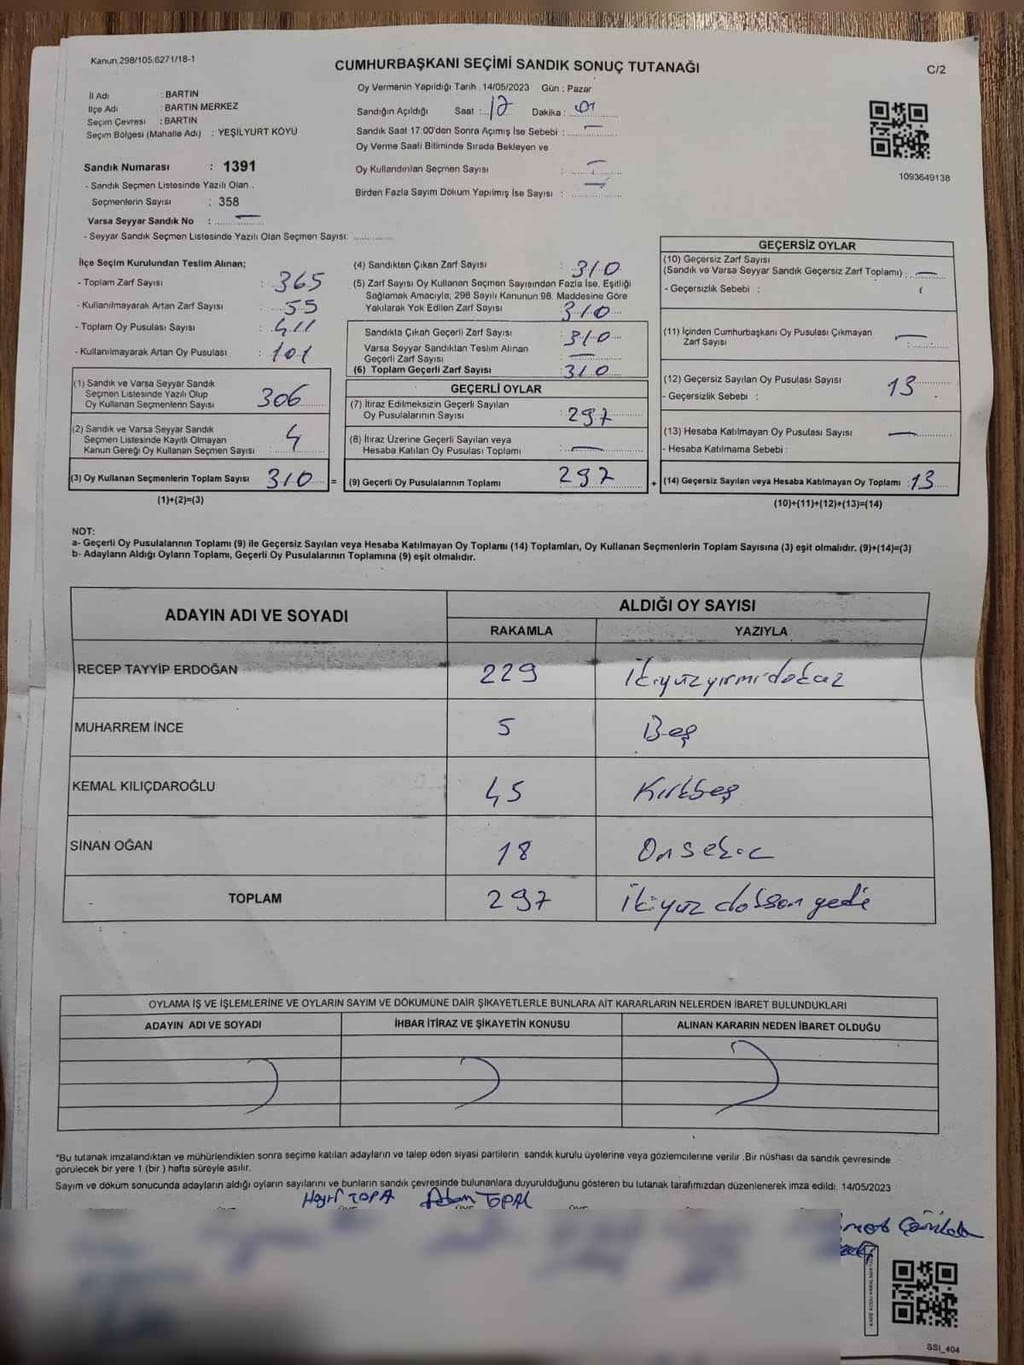 Kanun.298/105.6271/18-1
CUMHURBAŞKANI SEÇİMİ SANDIK SONUÇ TUTANAĞI
C/2
İl Adı : BARTIN
İlçe Adı : BARTIN MERKEZ
Seçim Çevresi : BARTIN
Seçim Bölgesi (Mahalle Adı) : YEŞİLYURT KÖYÜ
Sandık Numarası : 1391
- Sandık Seçmen Listesinde Yazılı Olan
Seçmenlerin Sayısı : 358
Varsa Seyyar Sandık No : –
- Seyyar Sandık Seçmen Listesinde Yazılı Olan Seçmen Sayısı:
Oy Vermenin Yapıldığı Tarih :14/05/2023 Gün : Pazar
Sandığın Açıldığı Saat : 17 Dakika : 01
Sandık Saat 17:00'den Sonra Açımış İse Sebebi : –
Oy Verme Saati Bitiminde Sırada Bekleyen ve
Oy Kullandırılan Seçmen Sayısı : –
Birden Fazla Sayım Döküm Yapılmış İse Sayısı : –
1093649138
İlçe Seçim Kurulundan Teslim Alınan;
- Toplam Zarf Sayısı : 365
- Kullanılmayarak Artan Zarf Sayısı : 55
- Toplam Oy Pusulası Sayısı : 411
- Kullanılmayarak Artan Oy Pusulası : 101
(1) Sandık ve Varsa Seyyar Sandık
Seçmen Listesinde Yazılı Olup
Oy Kullanan Seçmenlerin Sayısı 306
(2) Sandık ve Varsa Seyyar Sandık
Seçmen Listesinde Kayıtlı Olmayan
Kanun Gereği Oy Kullanan Seçmen Sayısı 4
(3) Oy Kullanan Seçmenlerin Toplam Sayısı 310
(1)+(2)=(3)
(4) Sandıktan Çıkan Zarf Sayısı : 310
(5) Zarf Sayısı Oy Kullanan Seçmen Sayısından Fazla İse, Eşitliği
Sağlamak Amacıyla, 298 Sayılı Kanunun 98. Maddesine Göre
Yakılarak Yok Edilen Zarf Sayısı : 310
Sandıkta Çıkan Geçerli Zarf Sayısı : 310
Varsa Seyyar Sandıktan Teslim Alınan
Geçerli Zarf Sayısı : –
(6) Toplam Geçerli Zarf Sayısı : 310
GEÇERLİ OYLAR
(7) İtiraz Edilmeksizin Geçerli Sayılan
Oy Pusulalarının Sayısı : 297
(8) İtiraz Üzerine Geçerli Sayılan veya
Hesaba Katılan Oy Pusulası Toplamı : –
= (9) Geçerli Oy Pusulalarının Toplamı 297 +
GEÇERSİZ OYLAR
(10) Geçersiz Zarf Sayısı
(Sandık ve Varsa Seyyar Sandık Geçersiz Zarf Toplamı) : –
- Geçersizlik Sebebi :
(11) İçinden Cumhurbaşkanı Oy Pusulası Çıkmayan
Zarf Sayısı : –
(12) Geçersiz Sayılan Oy Pusulası Sayısı 13
- Geçersizlik Sebebi :
(13) Hesaba Katılmayan Oy Pusulası Sayısı –
- Hesaba Katılmama Sebebi :
(14) Geçersiz Sayılan veya Hesaba Katılmayan Oy Toplamı : 13
(10)+(11)+(12)+(13)=(14)
NOT:
a- Geçerli Oy Pusulalarının Toplamı (9) ile Geçersiz Sayılan veya Hesaba Katılmayan Oy Toplamı (14) Toplamları, Oy Kullanan Seçmenlerin Toplam Sayısına (3) eşit olmalıdır. (9)+(14)=(3)
b- Adayların Aldığı Oyların Toplamı, Geçerli Oy Pusulalarının Toplamına (9) eşit olmalıdır.
ADAYIN ADI VE SOYADI
ALDIĞI OY SAYISI
RAKAMLA YAZIYLA
RECEP TAYYİP ERDOĞAN 229 İkiyüzyirmidokuz
MUHARREM İNCE 5 Beş
KEMAL KILIÇDAROĞLU 45 Kırkbeş
SİNAN OĞAN 18 Onsekiz
TOPLAM 297 İkiyüz doksan yedi
OYLAMA İŞ VE İŞLEMLERİNE VE OYLARIN SAYIM VE DÖKÜMÜNE DAİR ŞİKAYETLERLE BUNLARA AİT KARARLARIN NELERDEN İBARET BULUNDUKLARI
ADAYIN ADI VE SOYADI İHBAR İTİRAZ VE ŞİKAYETİN KONUSU ALINAN KARARIN NEDEN İBARET OLDUĞU
*Bu tutanak imzalandıktan ve mühürlendikten sonra seçime katılan adayların ve talep eden siyasi partilerin sandık kurulu üyelerine veya gözlemcilerine verilir .Bir nüshası da sandık çevresinde
görülecek bir yere 1 (bir ) hafta süreyle asılır.
Sayım ve döküm sonucunda adayların aldığı oyların sayılarını ve bunların sandık çevresinde bulunanlara duyurulduğunu gösteren bu tutanak tarafımızdan düzenlenerek imza edildi. 14/05/2023
TOPAL
SSI_404